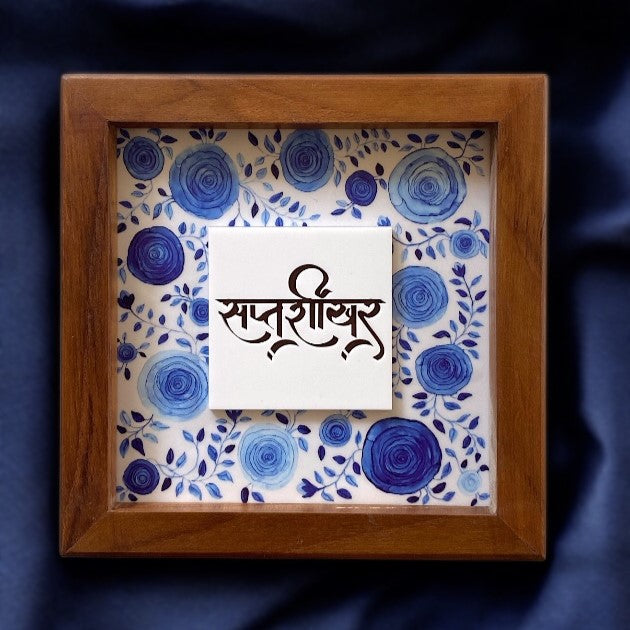 सप्तशिखर